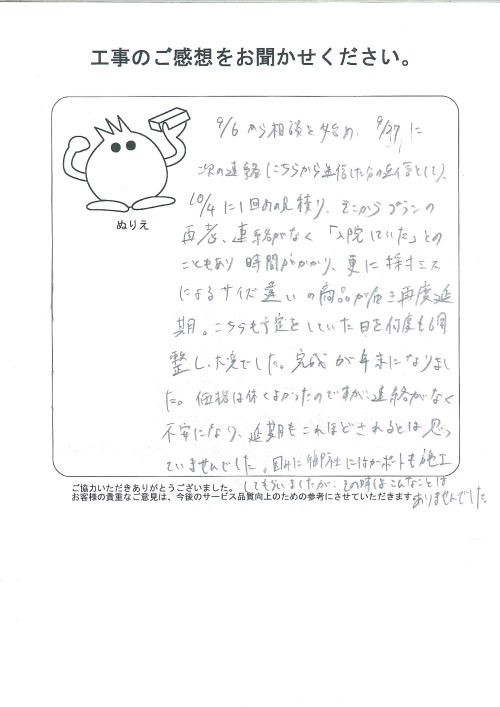 工事のご感想をお聞かせください。
9/6 から相談を始め、9/27 に
次の連絡(こちらから送信した分の返信として)、
10/4に1回目の見積り、そこからプランの
再考、連絡がなく「入院していた」との
こともあり時間がかかり、更に採寸ミス
によるサイズ違いの商品が届き再度延
期。こちらも予定をしていた日を何度も
整し大変でした。完成が年末になりまし
た。価格は安くよかったのですが、連絡がなく
不安になり、延期もこれほどされるとは思っ
ていませんでした。 に御社にはカーポートも施工
してもらいましたが、その時はこんなことは
ありませんでした。
ぬりえ
ご協力いただきありがとうございました。
お客様の貴重なご意見は、今後のサービス品質向上のための参考にさせていただきます。